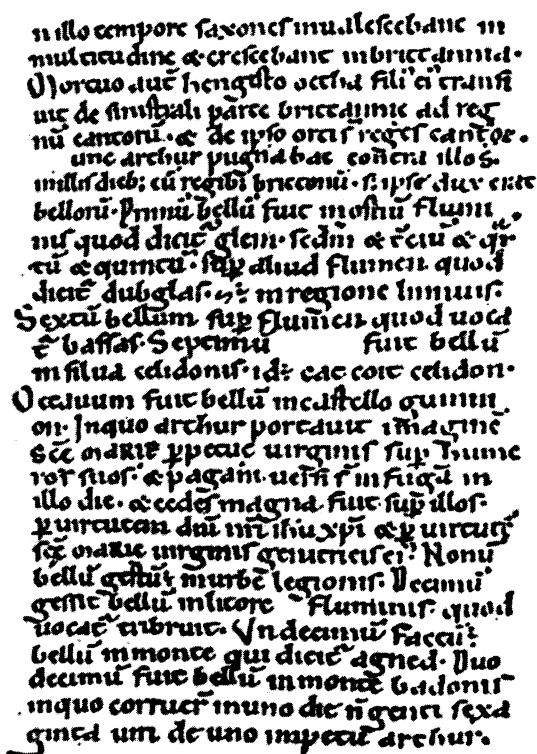 n illo tempore saxones inualescebant in
multitudine & crescebant in brittannia.
Mortuo aut̄ hengisto octha fili' ei' transi
uit de sinistrali parte brittannie ad reg
nū cantorū. & de ipso orti s̄ reges cantor.
unc arthur pugnabat contra illos.
in illis dieb; cū regib; brittonū. s; ipse dux erat
bellorū. Primū bellū fuit in ostiū flumi
nis quod dicit̄ glein. secdm̄ & t̄ciū & qr̄
tū & quintū. sup̄ aliud flumen quod
dicit̄ dubglas. & ē in regione linnuis.
Sextū bellum sup̄ flumen quod uoca
t̄ bassas. Septimū fuit bellū
in silua celidonis. id ē cat coit celidon.
Octauum fuit bellū in castello guinni
on. In quo arthur portauit imaginē
scē marie p̱petue uirginis sup̄ hume
ros suos. & pagani uersi s̄ in fugā in
illo die. & cedes magna fuit sup̄ illos.
p̱ uirtutem dnī nrī ihū xpī & p̱ uirtutē
scē marie uirginis genitricis ei'. Nonū
bellū gestū ē in urbē legionis. Decimū
gessit bellū in litore fluminis. quod
uocat̄ tribruit. Vndecimū factū ē
bellū in monte qui dicit̄ agned. Duo
decimū fuit bellū in monte badonis
in quo corruer̄ in uno die n̄genti sexa
ginta uiri de uno impetu arthur.